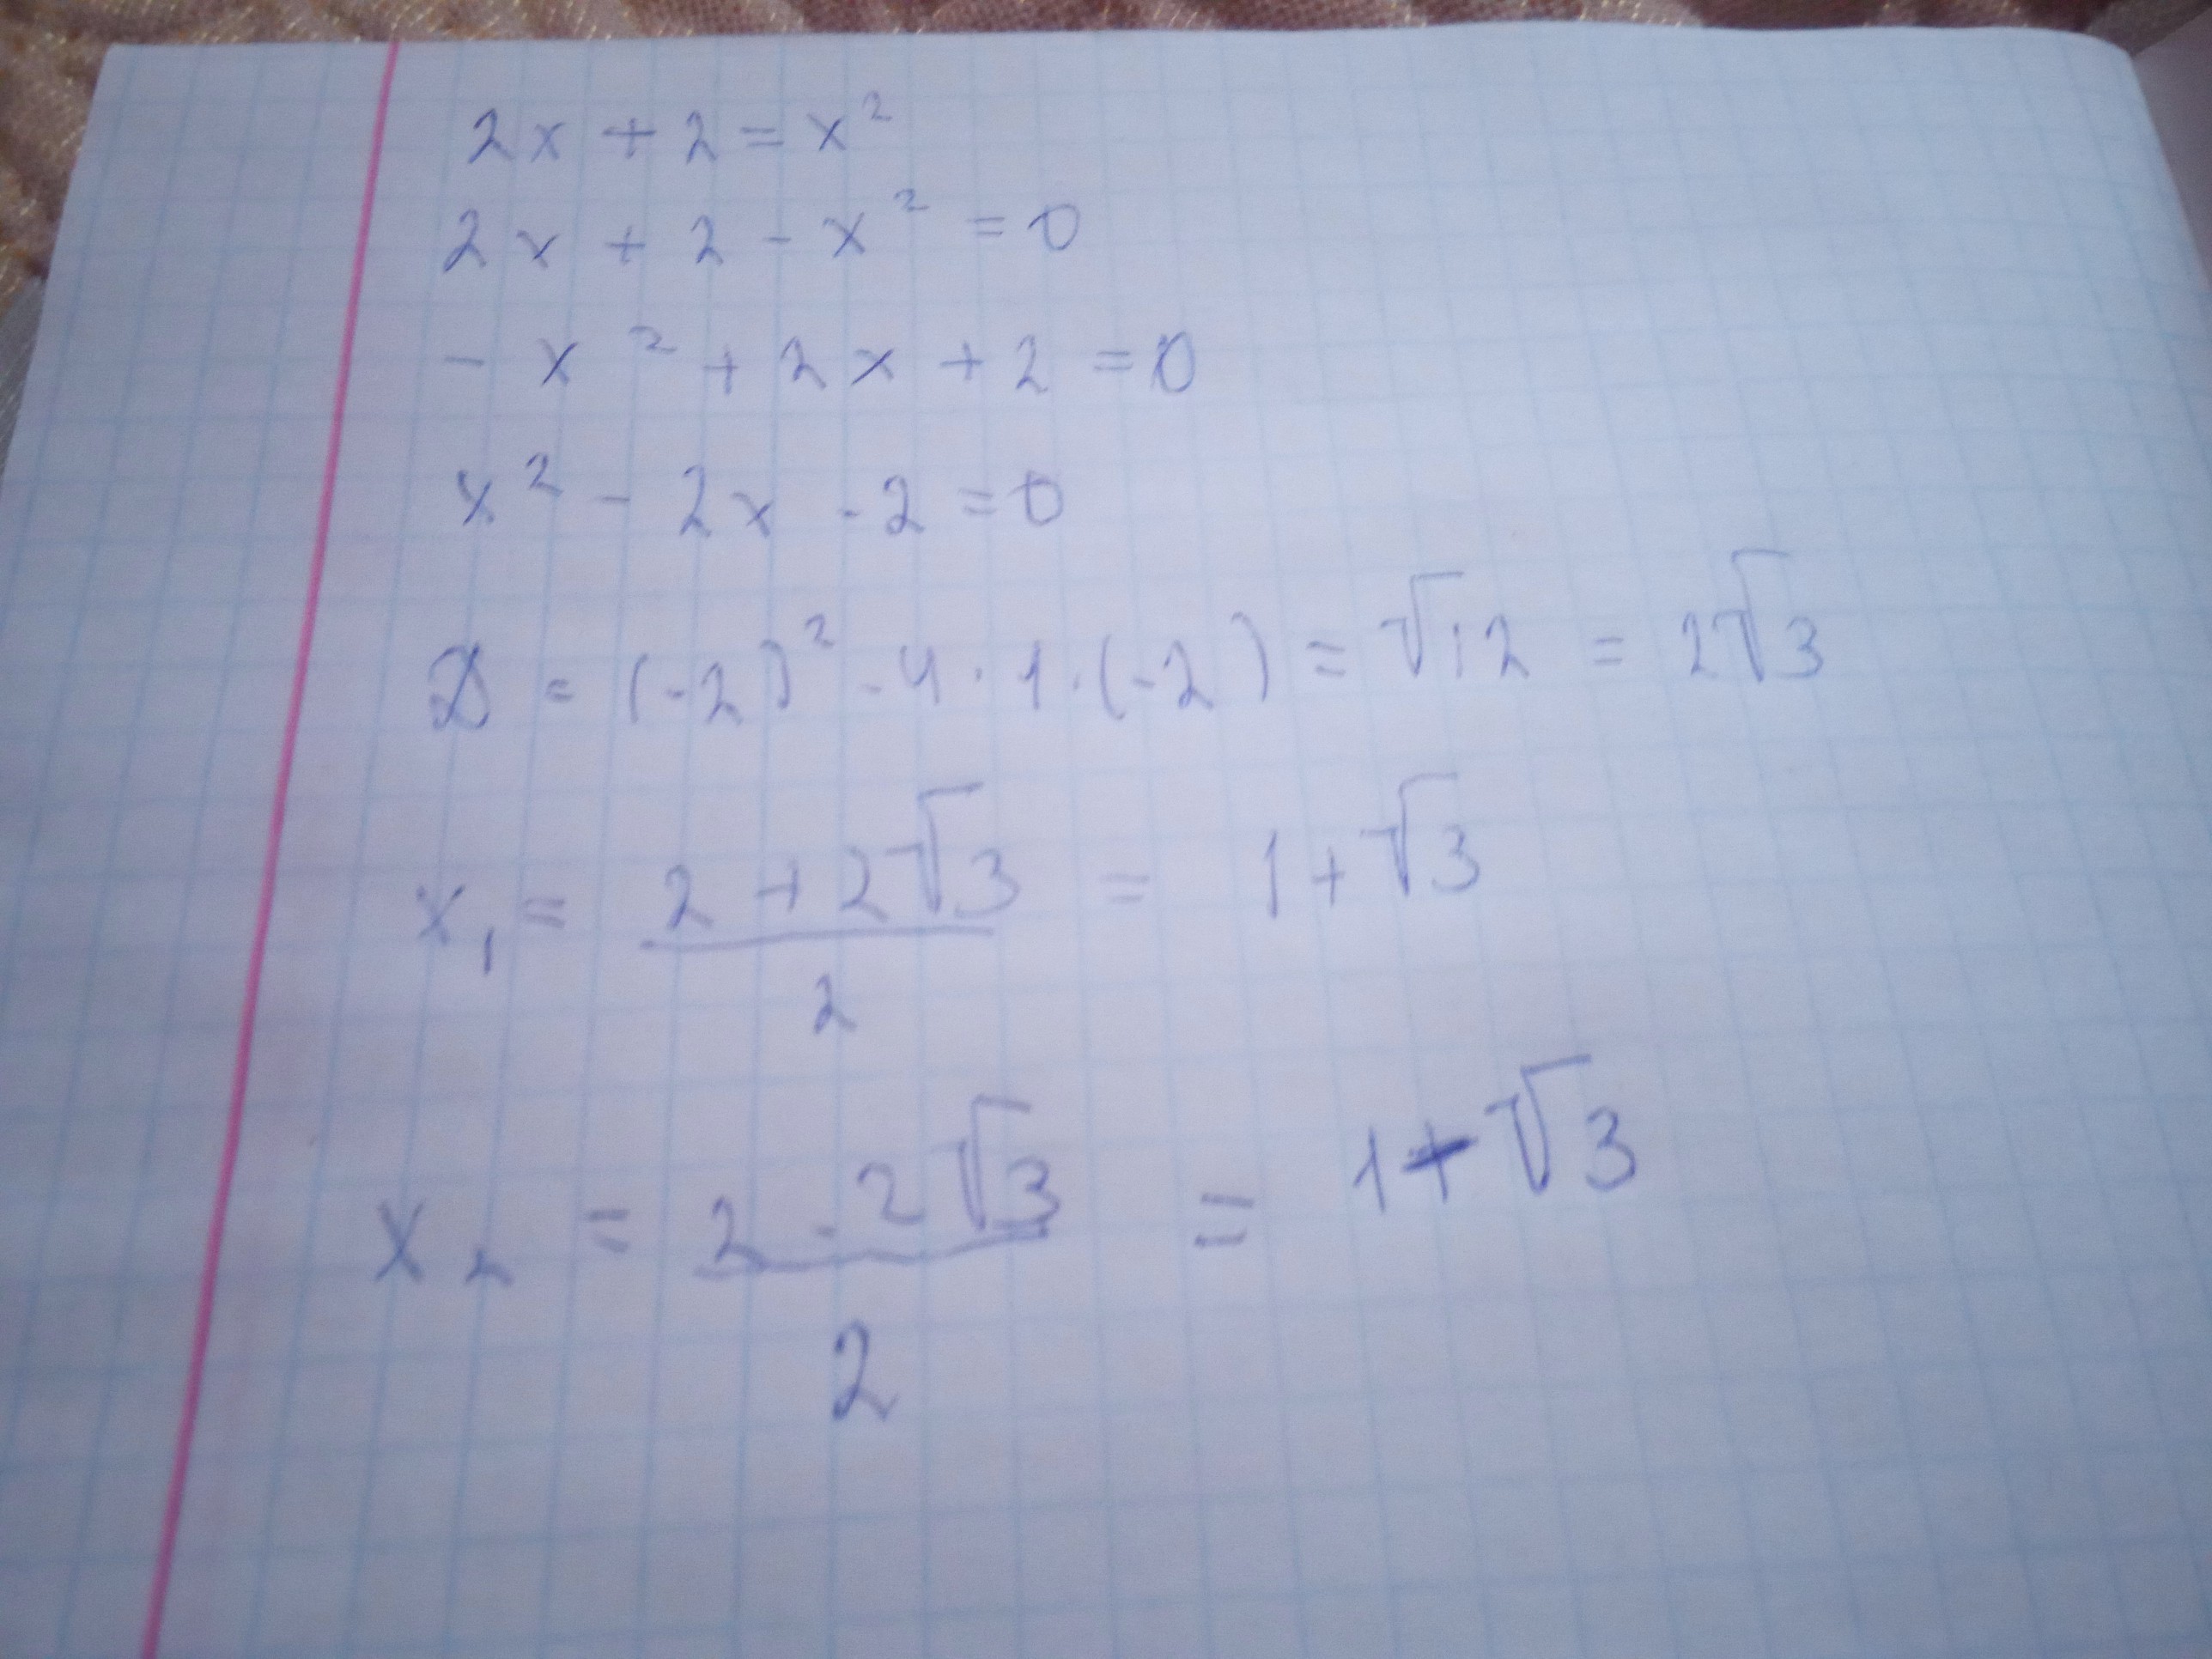 2x + 2 = x²
2x + 2 - x² = 0
- x² + 2x + 2 = 0
x² - 2x - 2 = 0
D = (-2)² - 4 · 1 · (-2) = √12 = 2√3
x₁ = (2 + 2√3)/2 = 1 + √3
x₂ = (2 - 2√3)/2 = 1 - √3